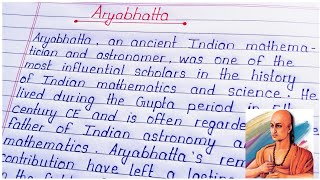 Aryabhatta
Aryabhatta, an ancient Indian mathema-
tician and astronomer, was one of the
most influential scholars in the history
of Indian mathematics and science. He
lived during the Gupta period in
century CE and is often
father of Indian astronomy
mathematics. Aryabhatta's
contribution have left a